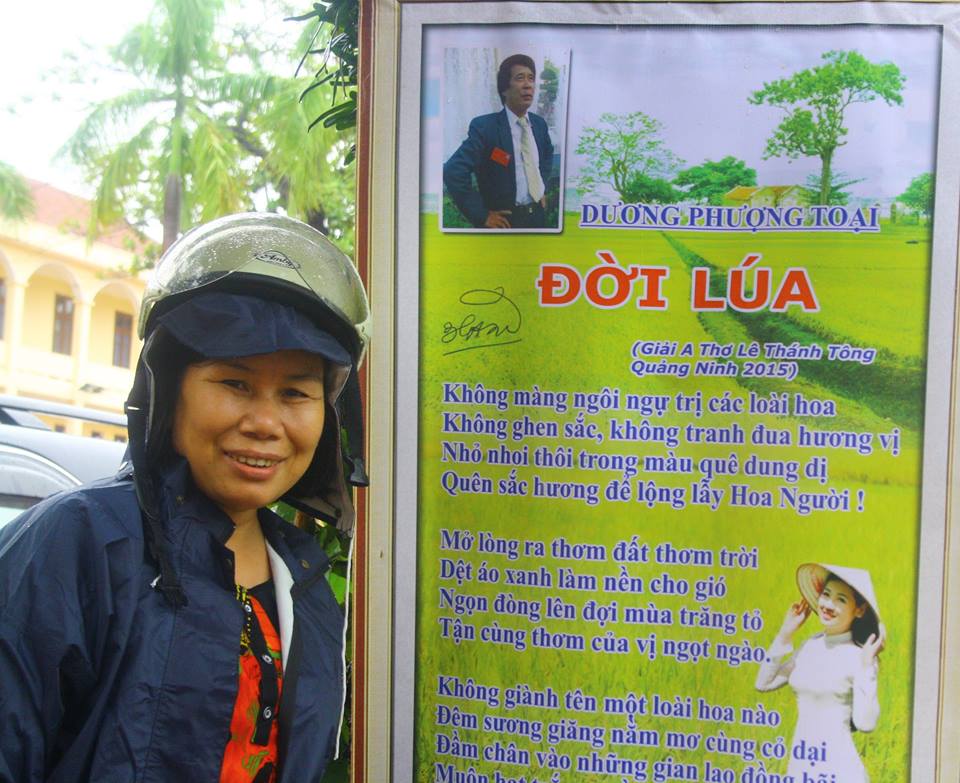 DƯƠNG PHƯỢNG TOẠI
ĐỜI LÚA
(Giải A Thơ Lê Thánh Tông
Quảng Ninh 2015)
Không màng ngôi ngự trị các loài hoa
Không ghen sắc, không tranh đua hương vị
Nhỏ nhoi thôi trong màu quê dung dị
Quên sắc hương để lộng lẫy Hoa Người !
Mở lòng ra thơm đất thơm trời
Dệt áo xanh làm nền cho gió
Ngọn đòng lên đợi mùa trăng tỏ
Tận cùng thơm của vị ngọt ngào.
Không giành tên một loài hoa nào
Đêm sương giăng nằm mơ cùng cỏ dại
Đầm chân vào những gian lao đồng bãi
Muôn hạt